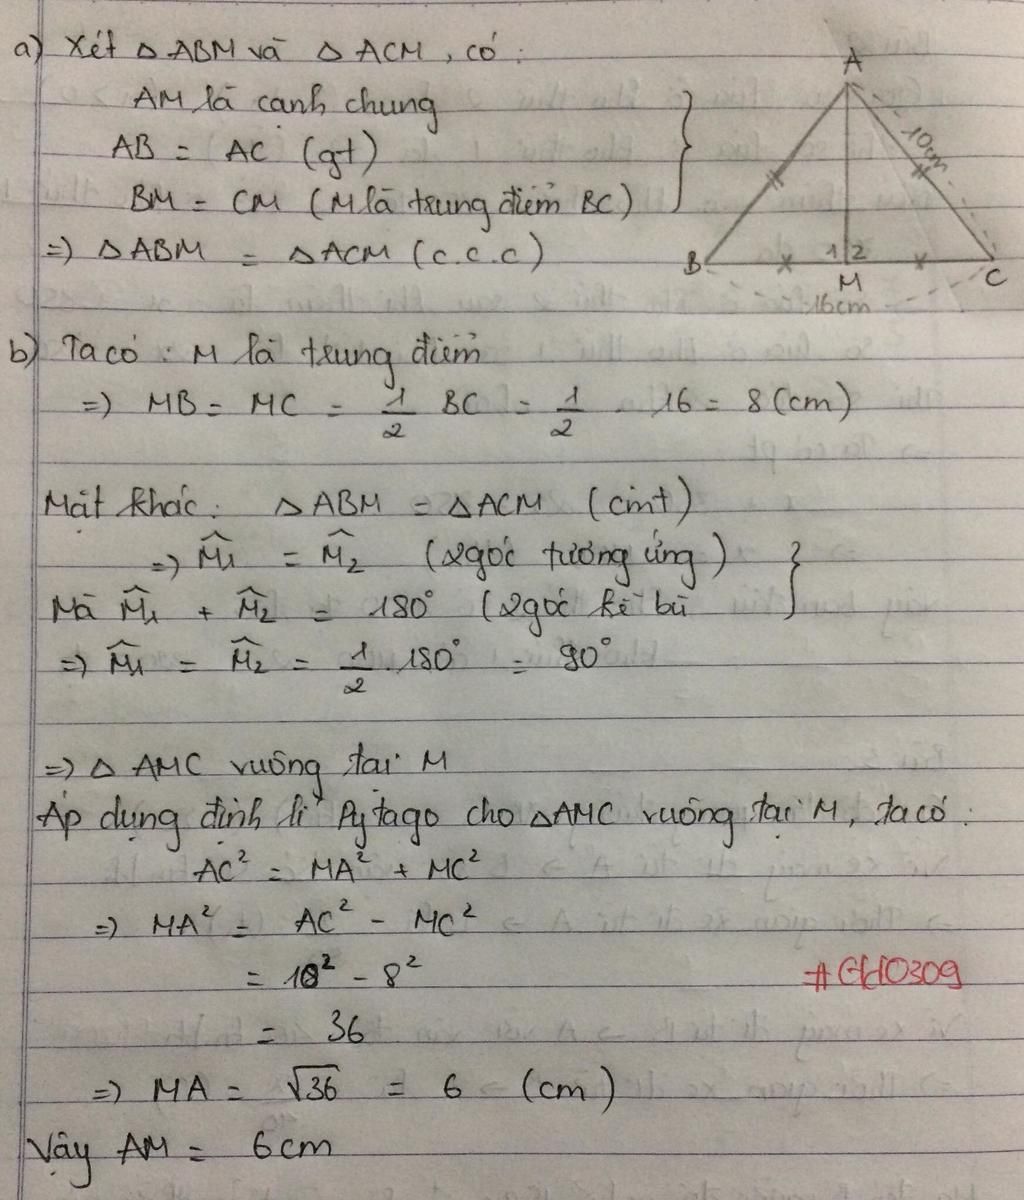 a) Xét △ABM và △ACM, có:
AM là cạnh chung
AB = AC (gt)
BM = CM (M là trung điểm BC)
=) △ABM = △ACM (c.c.c)
A
10cm
B
1 2
M
C
16cm
b) Ta có: M là trung điểm
=) MB = MC = 1/2 BC = 1/2 . 16 = 8 (cm)
Mặt khác: △ABM = △ACM (cmt)
=) M̂1 = M̂2 (2 góc tương ứng)
Mà M̂1 + M̂2 = 180° (2 góc kề bù
=) M̂1 = M̂2 = 1/2 . 180° = 90°
=) △AMC vuông tại M
Áp dụng định lí Pytago cho △AMC vuông tại M, ta có:
AC² = MA² + MC²
=) MA² = AC² - MC²
= 10² - 8²
#GH0309
= 36
=) MA = √36 = 6 (cm)
Vậy AM = 6cm